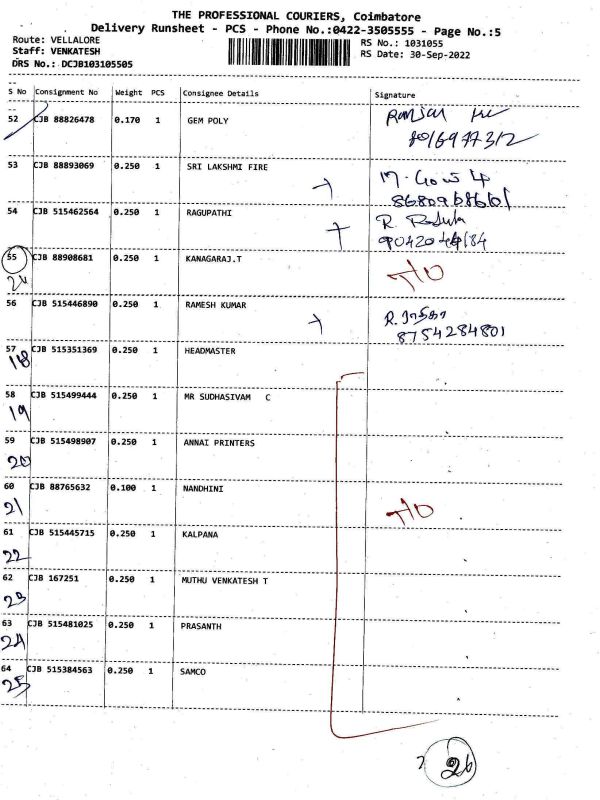 THE PROFESSIONAL COURIERS, Coimbatore
Delivery Runsheet - PCS - Phone No.:0422-3505555 - Page No.:5
Route: VELLALORE
Staff: VENKATESH
DRS No.: DCJB103105505
RS No.: 1031055
RS Date: 30-Sep-2022
S No Consignment No Weight PCS Consignee Details Signature
52 CJB 88826478 0.170 1 GEM POLY
53 CJB 88893069 0.250 1 SRI LAKSHMI FIRE
54 CJB 515462564 0.250 1 RAGUPATHI
R.
55 CJB 88908681 0.250 1 KANAGARAJ.T
56 CJB 515446890 0.250 1 RAMESH KUMAR
R.
8754284801
57 CJB 515351369 0.250 1 HEADMASTER
18
58 CJB 515499444 0.250 1 MR SUDHASIVAM C
19
59 CJB 515498907 0.250 1 ANNAI PRINTERS
20
60 CJB 88765632 0.100 1 NANDHINI
21
61 CJB 515445715 0.250 1 KALPANA
22
62 CJB 167251 0.250 1 MUTHU VENKATESH T
23
63 CJB 515481025 0.250 1 PRASANTH
24
64 CJB 515384563 0.250 1 SAMCO
25
26